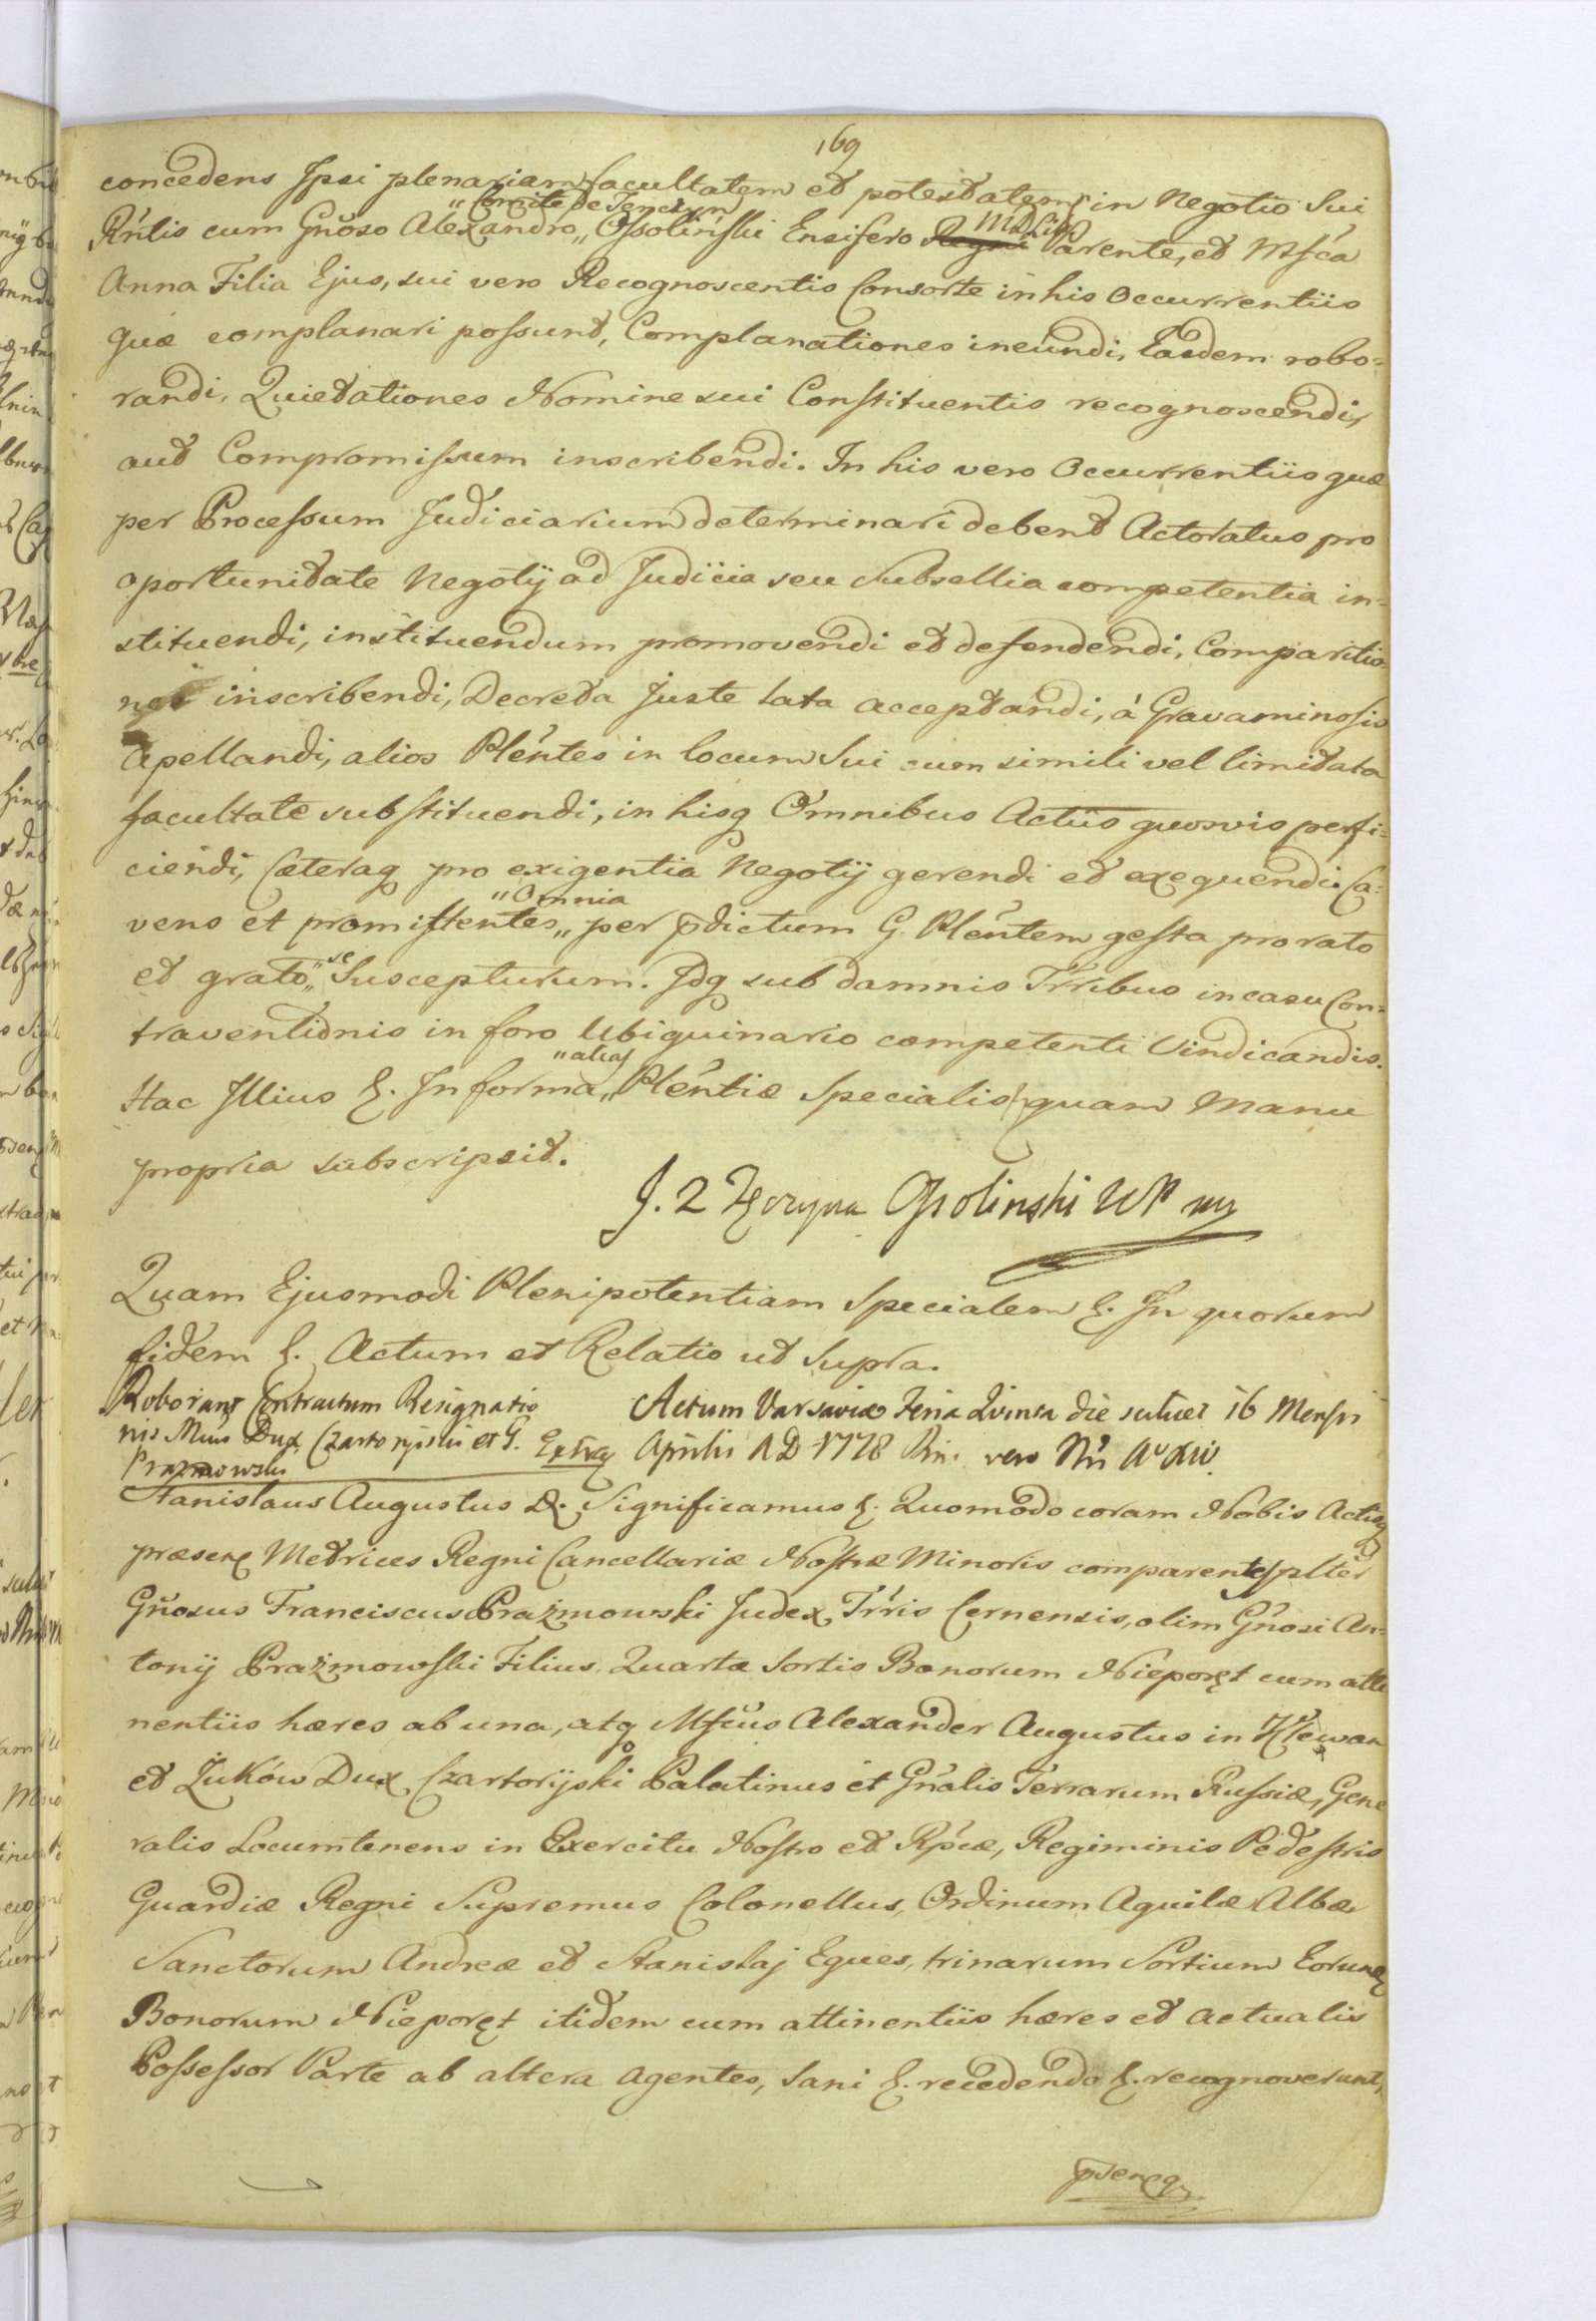 169
concedens Ipsi plenariam facultatem et potestatem in Negotio Sui
„Comite de Tenczyn
M D Litt
Rńtis cum Gnoso Alexandro „ Ossoliński Ensifero Regni Parente, et Mfca
Anna Filia Ejus, sui vero Recognoscentis Consorte in his Occurrentiis
quæ complanari possunt, Complanationes ineundi, Easdem robo=
randi, Quietationes Nomine sui Constituentis recognoscendi,
aut Compromissum inscribendi. In his vero Occurrentiis quæ
per Processum Judiciarium determinari debent Actoratus pro
oportunitate Negotij ad Judicia seu Subsellia competentia in=
stituendi, instituendum promovendi et defendendi, Comparitio=
nes inscribendi, Decreta juste lata acceptandi, á Gravaminosis
Apellandi, alios Pleńtes in locum Sui cum simili vel limitata
facultate substituendi, in hisq Omnibus Actus quosvis perfi=
ciendi, Cæteraq pro exigentia Negotij gerendi et exequendi. Ca=
„Omnia
vens et promittentes „ per pdictum G. Pleńtem gesta pro rato
se
et grato „ Suscepturum. Idq sub damnis Trribus in casu Con=
traventionis in foro Ubiquinario competenti Vindicandis.
„alias
Hac Illius &. In forma „ Pleńtiæ Specialis quam Manu
propria subscripsit.
J. 2 Tęczyna Ossolinski WP mp
Quam Ejusmodi Plenipotentiam Specialem &. In quorum
fidem &. Actum et Relatio ut Supra.
Roborant Contractum Resignatio
nis Mcus Dux Czartoryiski et G.
Prazmowski
Actum Varsaviæ Feria Quinta die scilicet 16 Mensis
Aprilis A D 1778 Rni. vero Nri Aº XIV.
Stanislaus Augustus &. Significamus &. Quomodo coram Nobis Actisq
præsenq Metrices Regni Cancellariæ Nostræ Minoris comparentes plter
Gnosus Franciscus Prażmowski Judex Trris Cernensis, olim Gnosi An=
tonij Prażmowski Filius. Quartæ Sortis Bonorum Nieporęt cum atti
nentiis hæres ab una, atq Mfcus Alexander Augustus in Klewan
et Żuków Dux Czartoryjski Palatinus et Gnalis Terrarum Russiæ, Gene
ralis Locumtenens in Exercitu Nostro et Rpcæ, Regiminis Pedestris
Guardiæ Regni Supremus Colonellus, Ordinum Aquilæ Albæ
Sanctorum Andreæ et Stanislaj Eques, trinarum Sortium Eorund
Bonorum Nieporęt itidem cum attinentiis hæres et actualis
Possessor Parte ab altera Agentes, Sani &. recedendo &. recognoverunt,